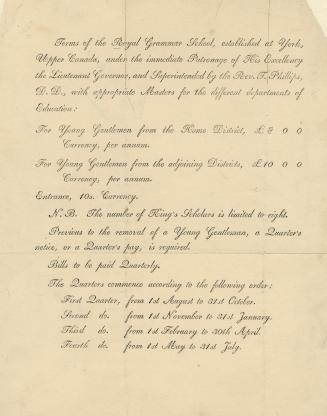 Terms of the Royal Grammar School, established at York,
Upper Canada, under the immediate Patronage of His Excellency
the Lieutenant Governor, and Superintended by the Rev. T. Phillips,
D. D., with appropriate Masters for the different departments of
Education:
For Young Gentlemen from the Home District, £8 0 0
Currency, per annum.
For Young Gentlemen from the adjoining Districts, £10 0 0
Currency, per annum.
Entrance, 10s. Currency.
N. B. The number of King's Scholars is limited to eight.
Previous to the removal of a Young Gentleman, a Quarter's
notice, or a Quarter's pay, is required.
Bills to be paid Quarterly.
The Quarters commence according to the following order:
First Quarter, from 1st August to 31st October.
Second do. from 1st November to 31st January.
Third do. from 1st February to 30th April.
Fourth do. from 1st May to 31st July.